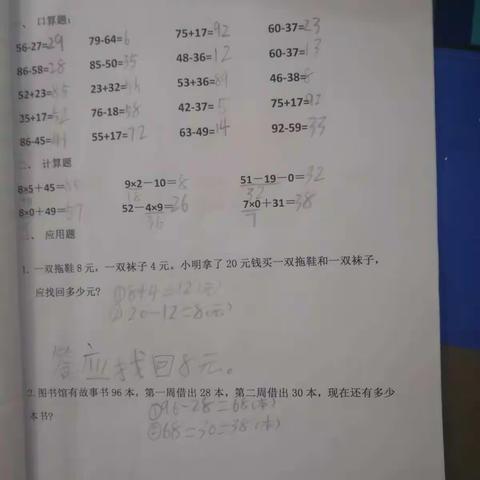 一、口算题:
56-27=29 79-64=6 75+17=92 60-37=23
86-58=28 85-50=35 48-36=12 60-37=13
52+23= 23+32= 53+36=89 46-38=8
35+17=52 76-18=58 42-37=5 75+17=92
86-45= 55+17=72 63-49=14 92-59=33
二、计算题
8×5+45= 9×2-10=8 51-19-0=32
18 32
8×0+49= 52-4×9=26 7×0+31=38
36 7
、应用题
1. 一双拖鞋 8 元,一双袜子 4 元,小明拿了 20 元钱买一双拖鞋和一双袜子,
应找回多少元? ①8+4=12(元)
②20-12=8(元)
答应找回8元。
2.图书馆有故事书 96 本,第一周借出 28 本,第二周借出 30 本,现在还有多少
本书? ①96-28=68(本)
②68=30=38(本)